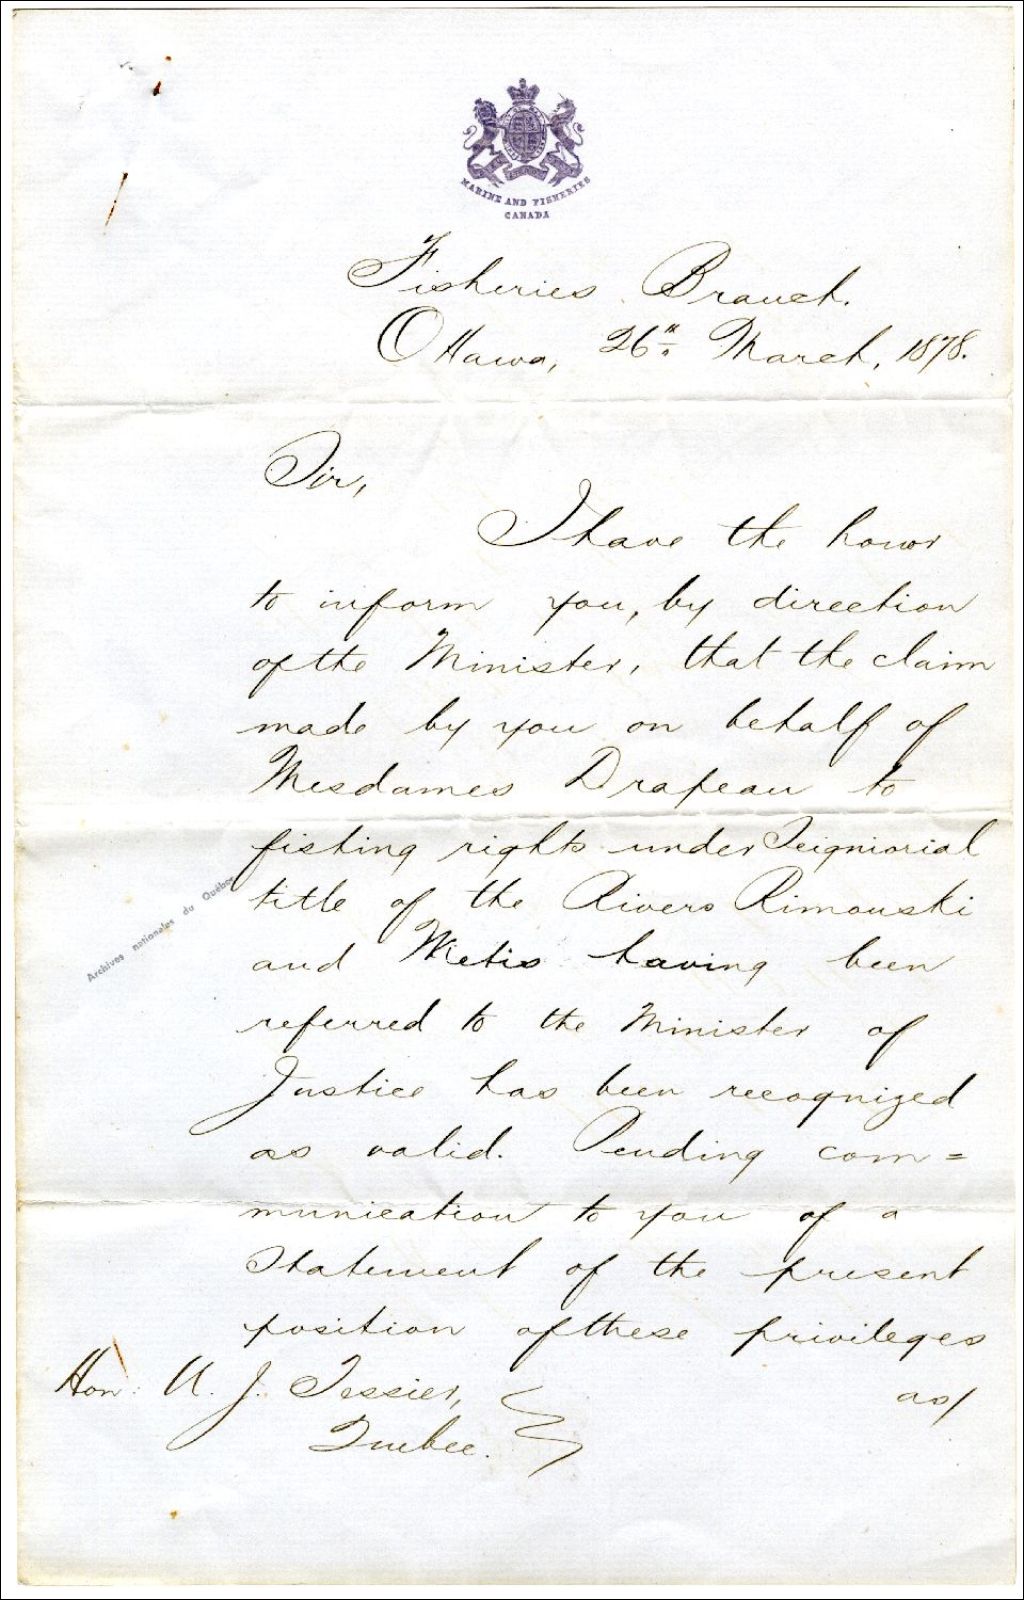 MARINE AND FISHERIES
CANADA
Fisheries Branch.
Ottawa, 26th March, 1878.
Sir,
I have the honor
to inform you, by direction
of the Minister, that the claim
made by you on behalf of
Mesdames Drapeau to
fishing rights under Seigniorial
title of the Rivers Rimouski
and Metis having been
referred to the Minister of
Justice has been recognized
as valid. Pending com=
munication to you of a
statement of the present
position of these privileges
as/
Hon: U. J. Tessier,
Quebec.
Archives nationales du Québec